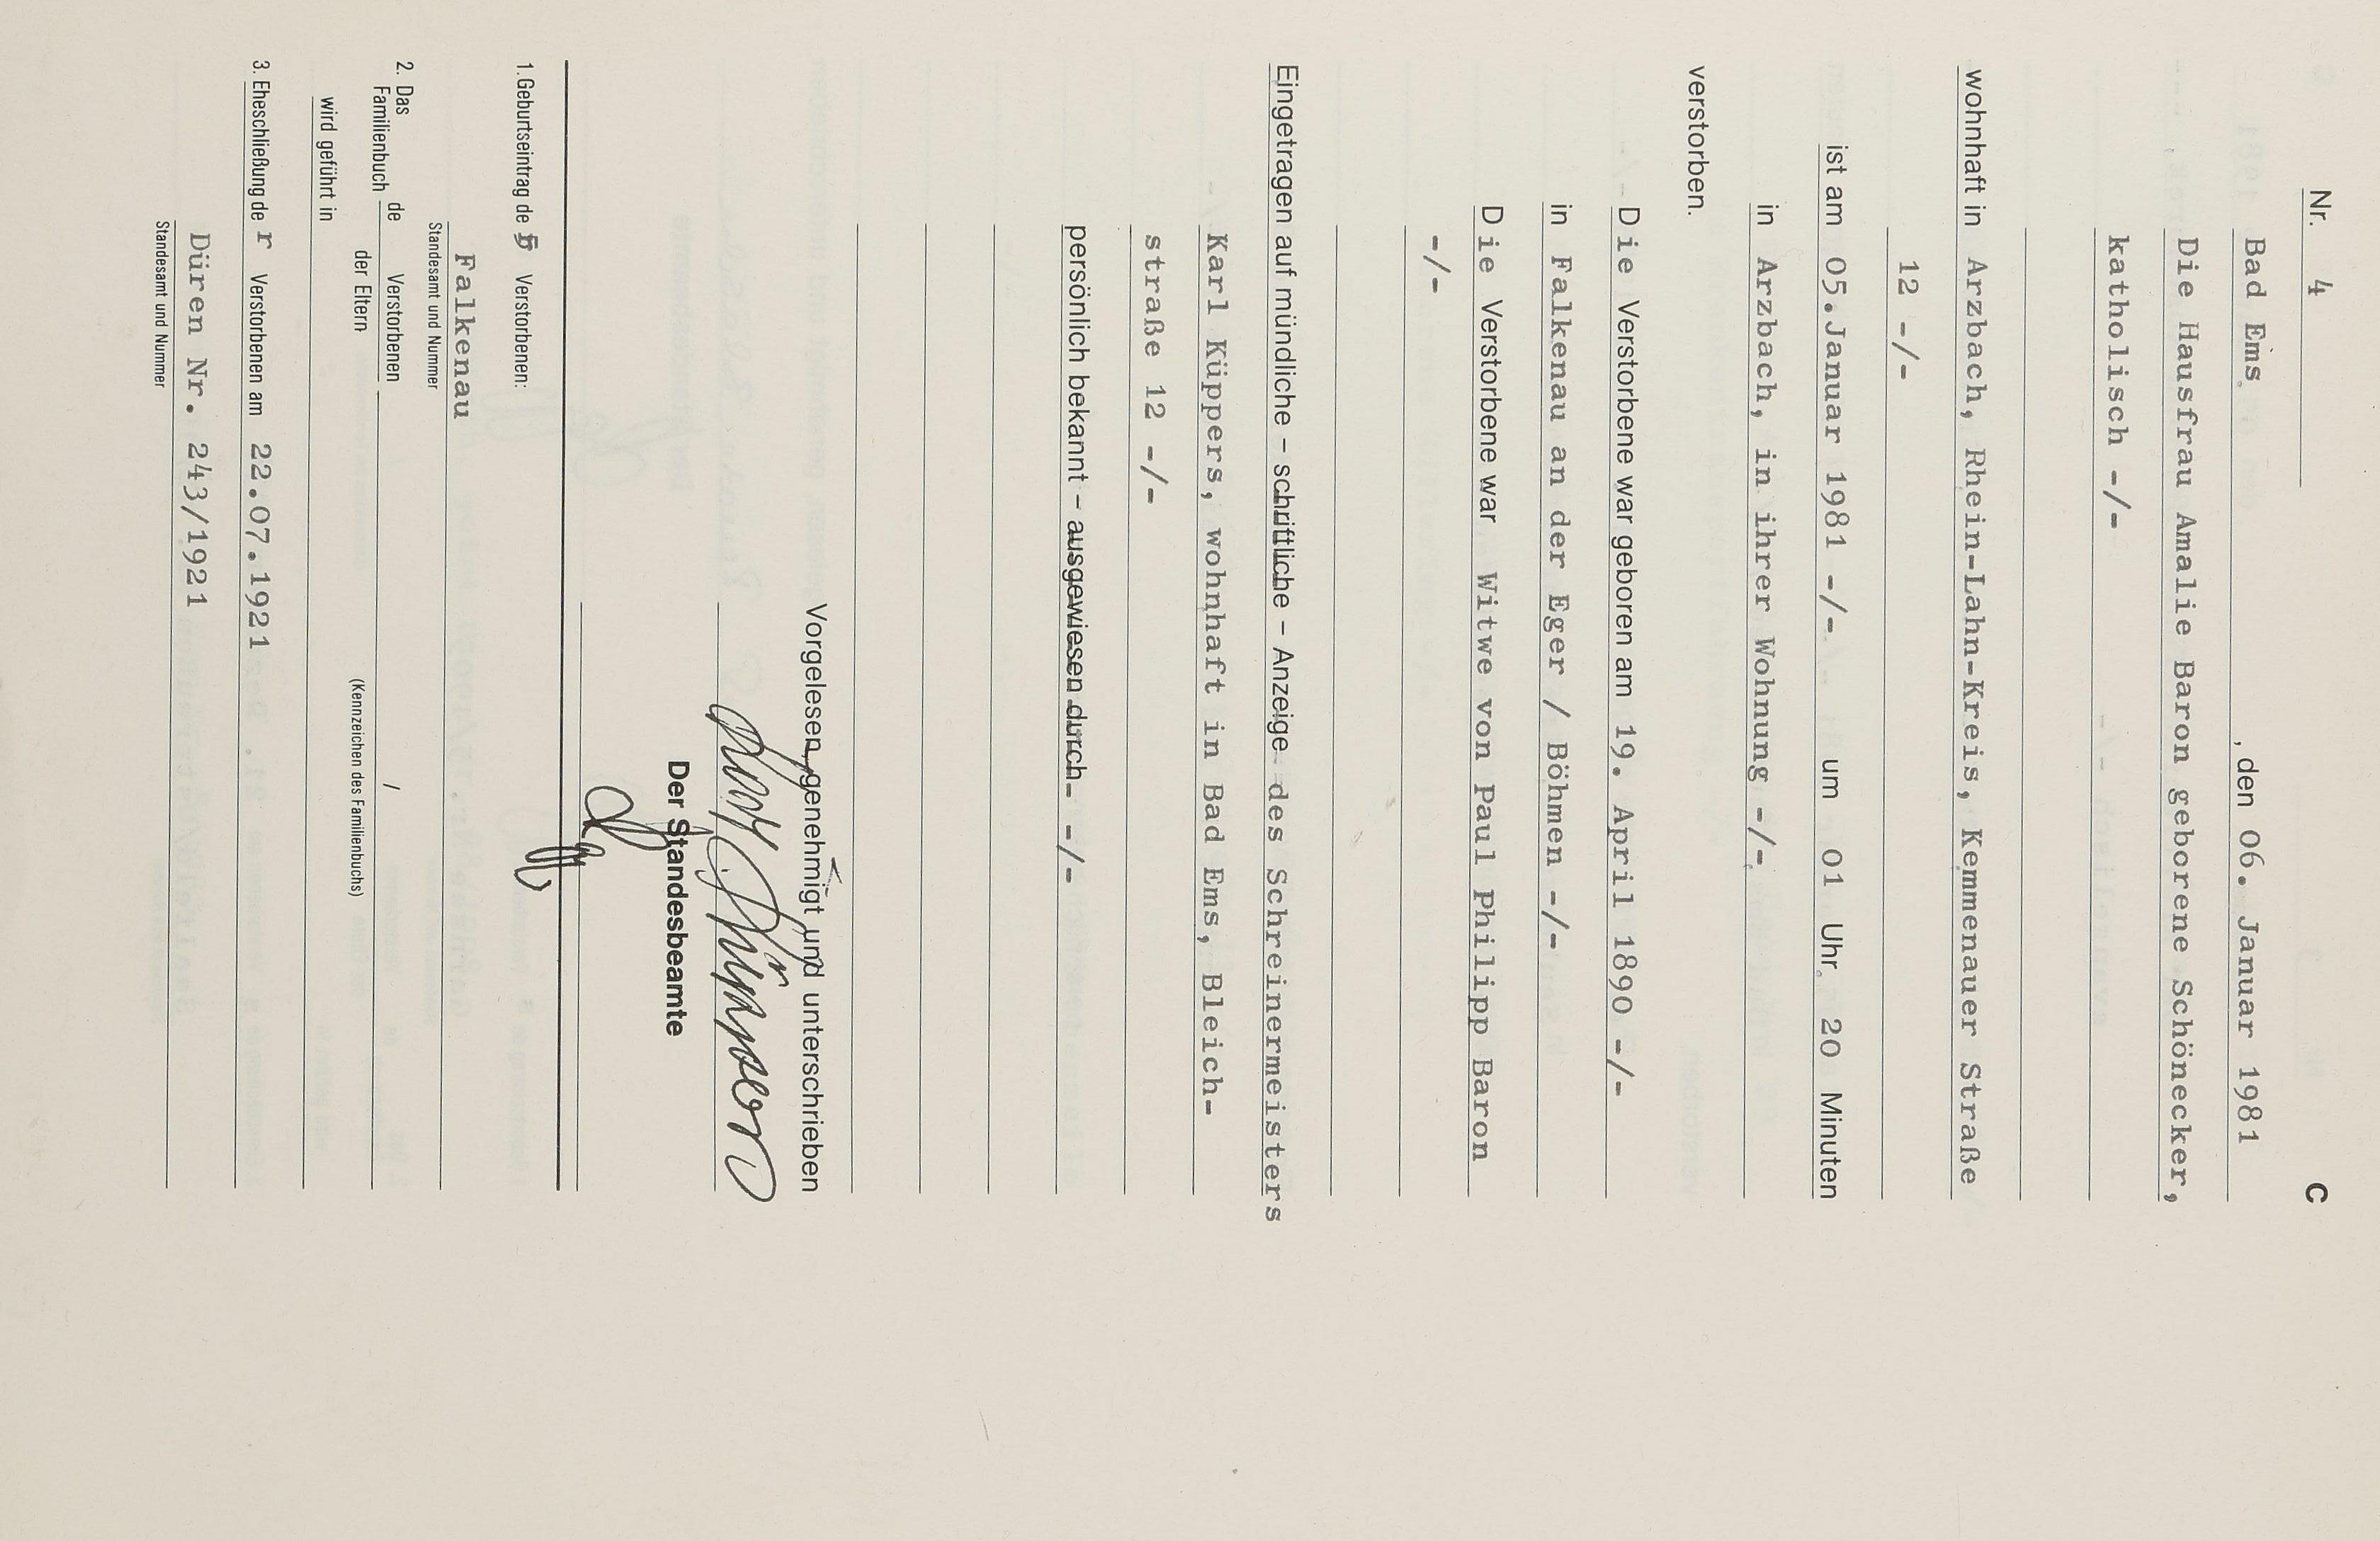 Nr. 4 C
Bad Ems, den 06. Januar 1981
Die Hausfrau Amalie Baron geborene Schönecker,
katholisch -/-
wohnhaft in Arzbach, Rhein-Lahn-Kreis, Kemmenauer Straße
12 -/-
ist am 05.Januar 1981 -/- um 01 Uhr 20 Minuten
in Arzbach, in ihrer Wohnung -/-
verstorben.
Die Verstorbene war geboren am 19. April 1890 -/-
in Falkenau an der Eger / Böhmen -/-
Die Verstorbene war Witwe von Paul Philipp Baron
-/-
Eingetragen auf mündliche – schriftliche – Anzeige des Schreinermeisters
Karl Küppers, wohnhaft in Bad Ems, Bleich-
straße 12 -/-
persönlich bekannt – ausgewiesen durch- -/-
Vorgelesen, genehmigt und unterschrieben
Der Standesbeamte
1. Geburtseintrag de Verstorbenen:
Falkenau
Standesamt und Nummer
2. Das Familienbuch de Verstorbenen / der Eltern /
wird geführt in (Kennzeichen des Familienbuchs)
3. Eheschließung der Verstorbenen am 22.07.1921
Düren Nr. 243/1921
Standesamt und Nummer